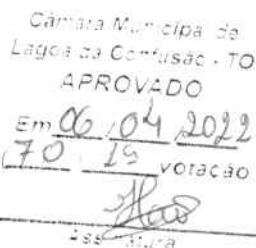 Câmara Municipal de
Lagoa da Confusão - TO
APROVADO
Em 06 / 04 / 2022
votação
Assinatura